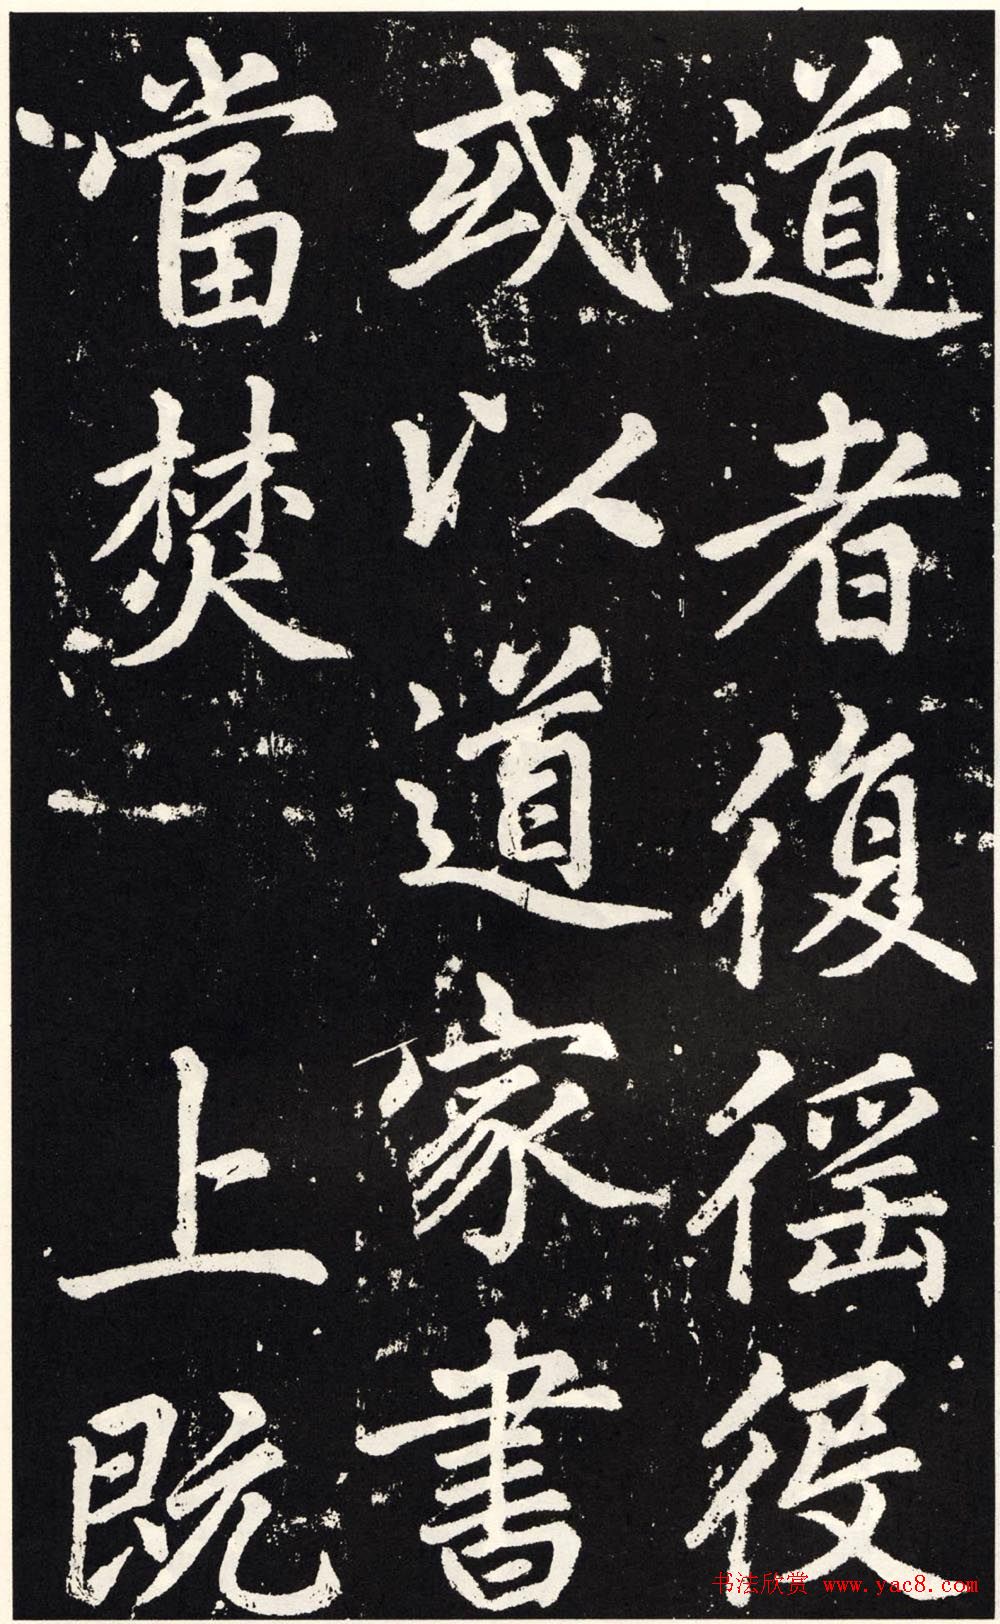 道者復徭役
或以道家書
當焚　上既
书法欣赏 www.yac8.com